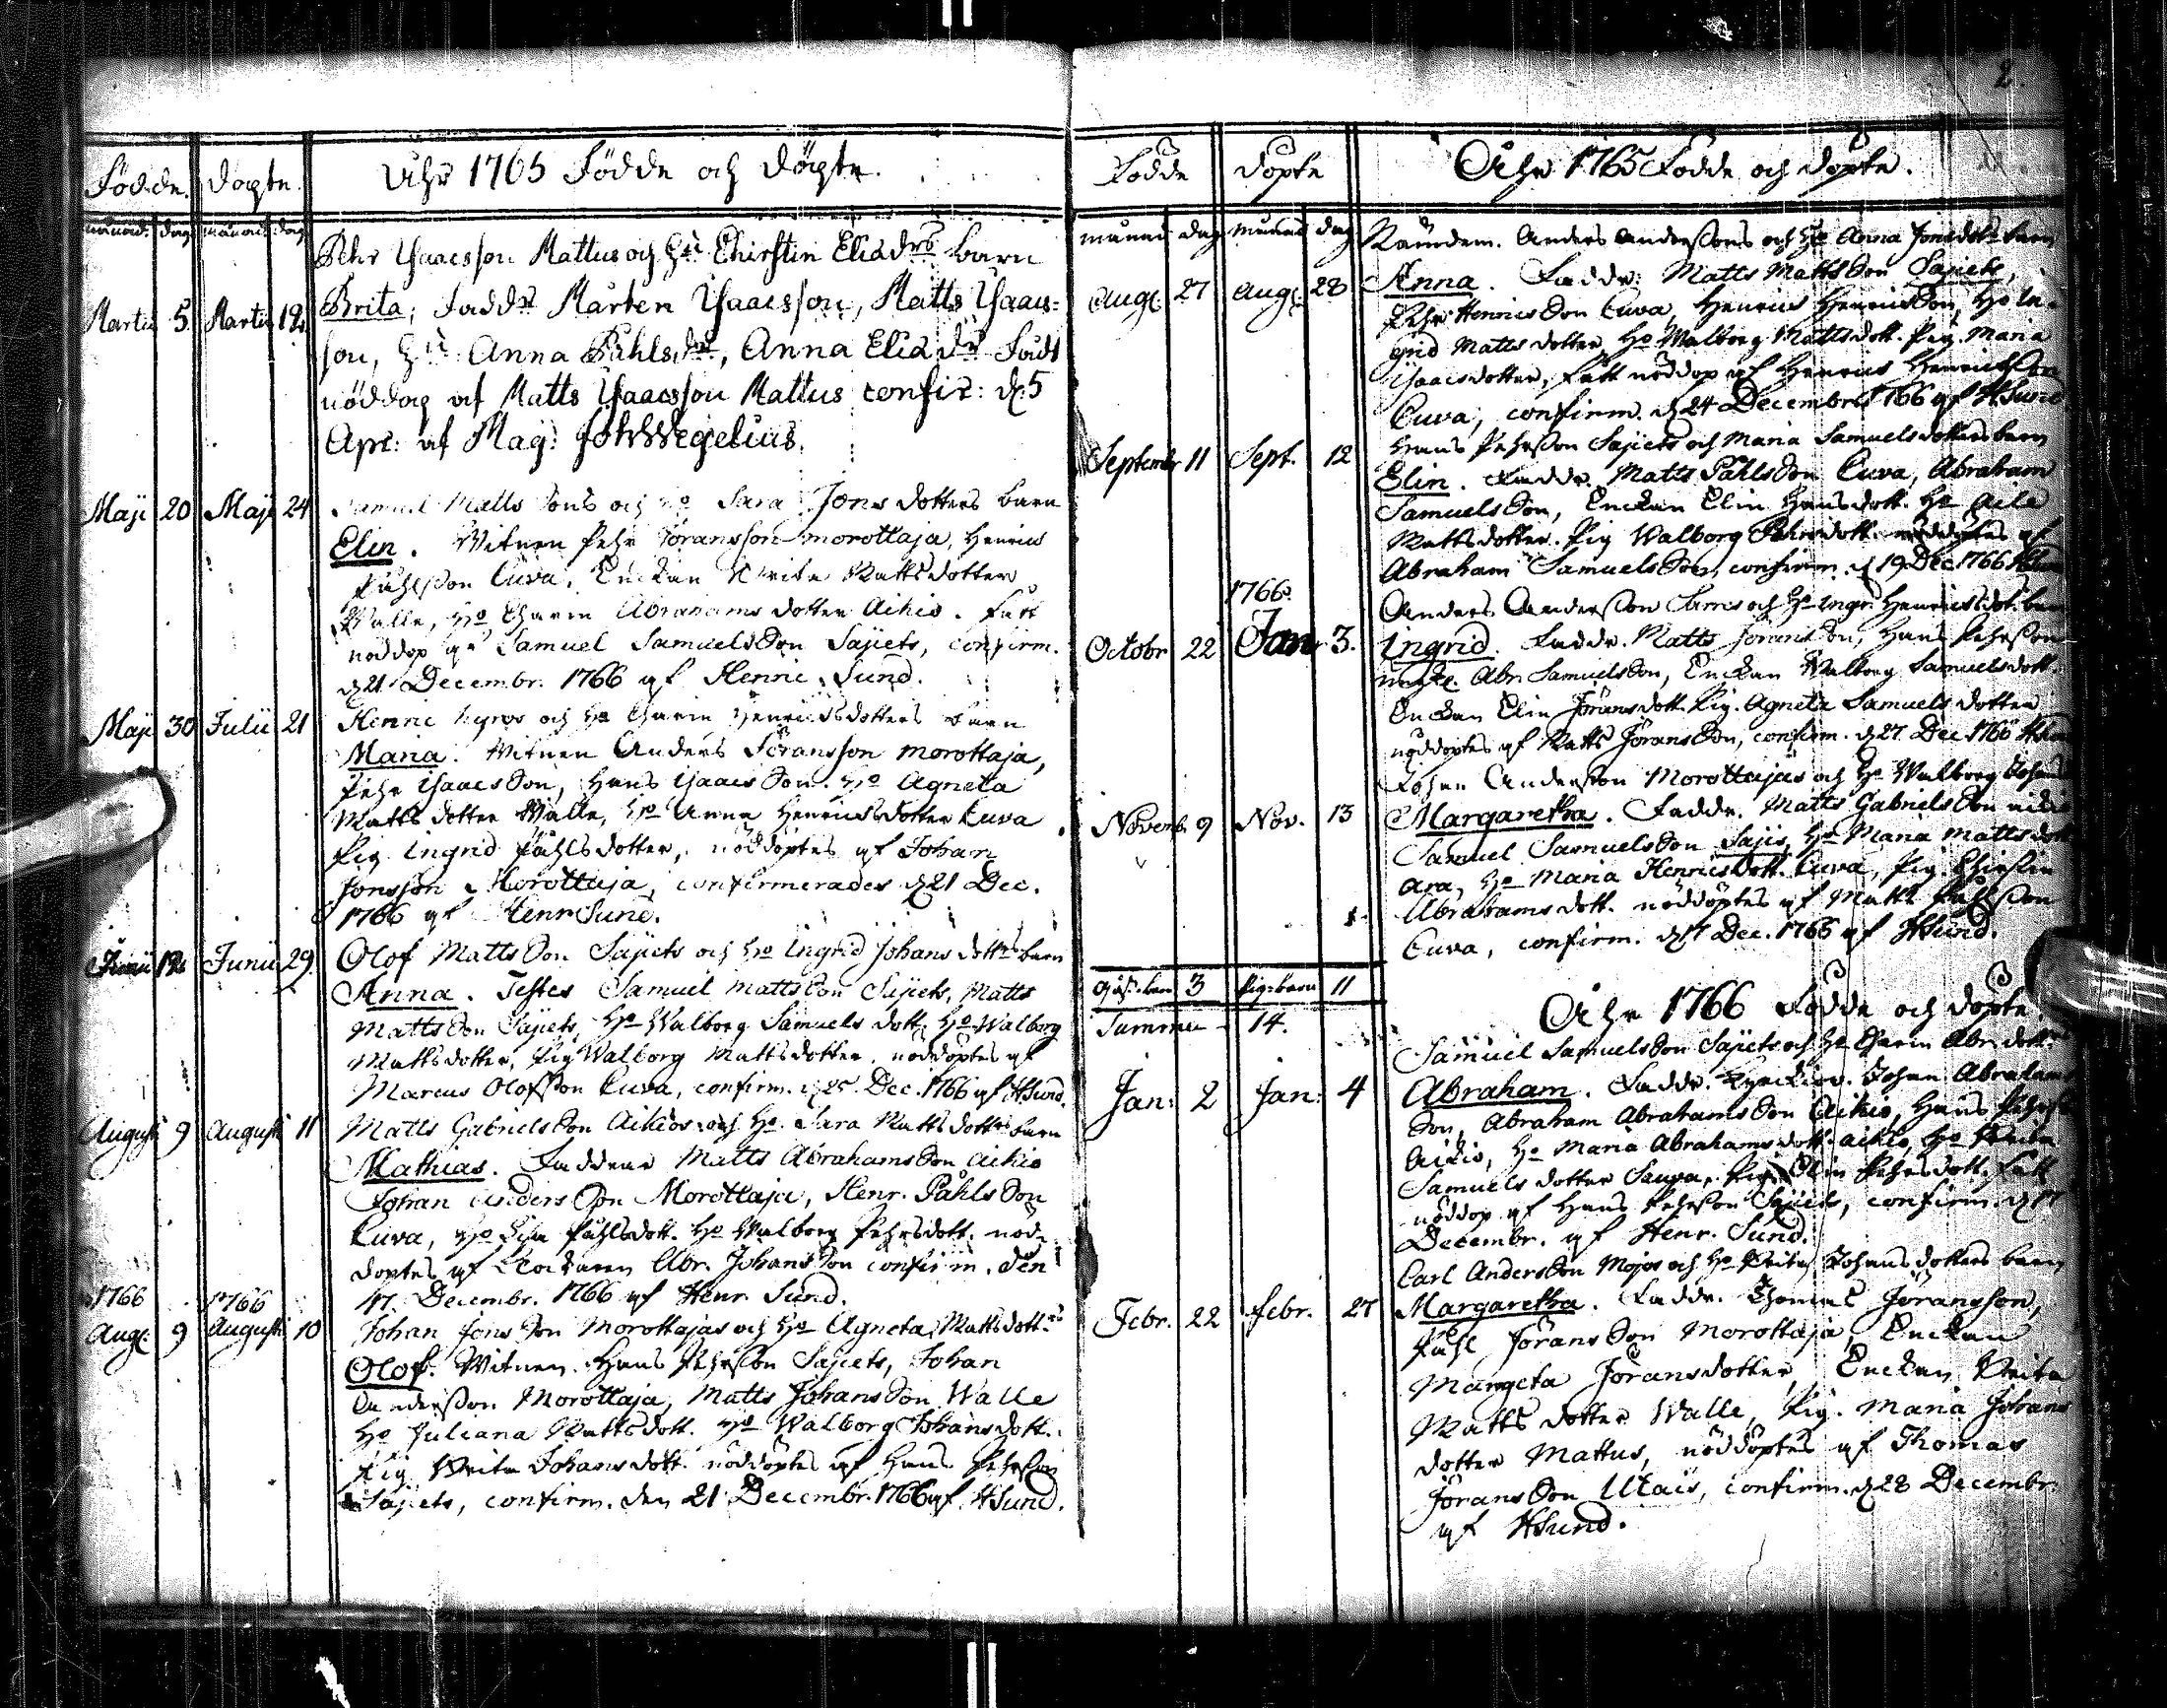 2.
Födde. döpte. Åhr 1765 Födde och döpte.
månad. dag månad dag
Pehr Isaacsson Mattus och Hu Chirstin Eliadrs barn
Martii 5. Martii 12. Brita, Faddr Mårten Isaacsson, Matts Isaacs=
son, Hu: Anna Påhlsdr, Anna Eliadr Fådt
nöddop af Matts Isaacsson Mattus confir: d: 5
Apr: af Mag: Joh Wegelius.
Maji 20 Maji 24 Samuel Matts Sons och Ho Sara Jons dotters barn
Elin. Witnen Pehr Jöransson morottaja, Henric
Påhlsson Cuva, Enckan Brita Mattsdotter
Walle, Ho Charin Abrahams dotter Aikio. Fått
nöddop af Samuel SamuelsSon Sajets, confirm.
d 21 Decembr. 1766 af Henric Sund.
Maji 30 Julii 21 Henric Kyrös och Ho Charin Henricsdotters barn
Maria. Witnen Anders Jöransson morottaja,
Pehr IsaacsSon, Hans IsaacsSon. Ho Agneta
Matts dotter Walle, Ho Anna Henricsdotter Cuva
Pig. Ingrid Påhlsdotter, nöddöptes af Johan
Jonsson Morottaja, confirmerades d 21 Dec.
1766 af Henr Sund.
Junii 12 Junii 29 Olof MattsSon Sajets och Ho Ingrid Johans dottrs barn
Anna. Testes Samuel MattsSon Sajets, Matts
MattsSon Sajets, Ho Walborg Samuels dott, Ho Walborg
Mattsdotter, Pig Walborg Mattsdotter, nöddöptes af
Marcus Olofsson Cuva, confirm. d 25 Dec. 1766 af HSund.
Augusti 9 Augusti 11 Matts GabrielsSon Aikios och Ho. Sara Mattsdottrs barn
Mathias. Faddrar Matts AbrahamsSon Aikio
Johan AndersSon Morottaja, Henr. PåhlsSon
Cuva, Ho Elin Påhlsdott. Ho Walborg Pehrsdott. nöd-
döptes af Klockaren Abr. JohansSon confirm. den
17. Decembr. 1766 af Henr Sund.
1766 1766
Aug. 9 Augusti 10 Johan JonsSon Morottajas och Ho Agneta Mattsdottrs
Olof. Witnen. Hans Pehrsson Sajets, Johan
Andersson Morottaja, Matts JohansSon Walle
Ho Juliana Mattsdott. Ho Walborg Johansdott.
Pig Brita Johansdott. nöddöptes af Hans Pehrsson
Sajets, confirm. den 21 Decembr. 1766 af HSund.
Födde döpte Åhr 1765 Födde och döpte.
månad dag månad dag
Anders Anderssons och Ho Anna Jonsdotrs barn
Aug. 27 Aug. 28 Anna. Faddr: Matts MattsSon Sajets,
Pehr HenricsSon Cuva, Henric HenricsSon, Ho In-
grid Matts dotter, Ho Walborg Mattsdott. Pig. Maria
Isaacsdotter, Fått nöddop af Henric Henricsson
Cuva, confirm. d 24 Decembr 1766 af HSund
Hans Pehrsson Sajets och Maria Samuelsdotters barn
September 11 Sept. 12 Elin. Faddr. Matts PåhlsSon Cuva, Abraham
SamuelsSon, Enckan Elin Hansdott. Ho
Mattsdotter. Pig Walborg Pehrsdott. nöddöptes af
Abraham SamuelsSon, confirm. d 19 Dec 1766 HSund
1766. Anders Andersson Sarres och Ho Ingr. Henricsdot. barn
Octobr 22 Jan 3. Ingrid. Faddr. Matts JöransSon, Hans Pehrsson
Abr. SamuelsSon, Enckan Walborg Samuelsdott.
Enckan Elin Jöransdott. Pig. Agneta Samuels dotter
nöddöptes af Matts JöransSon, confirm. d 27 Dec 1766 HSund
Johan Andersson Morottajas och Ho Walborg Johans
Novemb. 9 Nov. 13 Margaretha. Faddr. Matts GabrielsSon Aikio
Samuel SamuelsSon Sajis, Ho Maria Mattsdott
Ara, Ho Maria Henricsdott. Cuva, Pig. Chirstin
Abrahamsdott. nöddöptes af Matts Påhlsson
Cuva, confirm. d 17 Dec. 1766 af HSund.
Goss. barn 3 Pig. barn 11
Summa - 14.
Åhr 1766 Födde och döpte.
Samuel SamuelsSon Sajets och Ho Charin Abr. dott.
Jan: 2 Jan: 4 Abraham. Faddr. Johan Abrahams
Son, Abraham AbrahamsSon Aikio, Hans Pehrs
Aikio, Ho Maria Abrahamsdott. Aikio, Ho Brita
Samuels dotter Pig. Elin Pehrsdott. Fått
nöddop af Hans Pehrsson Sajets, confirm. d 17
Decembr. af Henr. Sund.
Carl AndersSon Mojos och Ho Brita Johansdotters barn
Febr. 22 Febr. 27 Margaretha. Faddr. Thomas Jöransson,
Påhl JöransSon Morottaja, Enckan
Margeta Jöransdotter, Enckan Brita
Matts dotter Walle, Pig. Maria Johans
dotter Mattus, nöddöptes af Thomas
JöransSon Utais, confirm. d 28 Decembr.
af HSund.